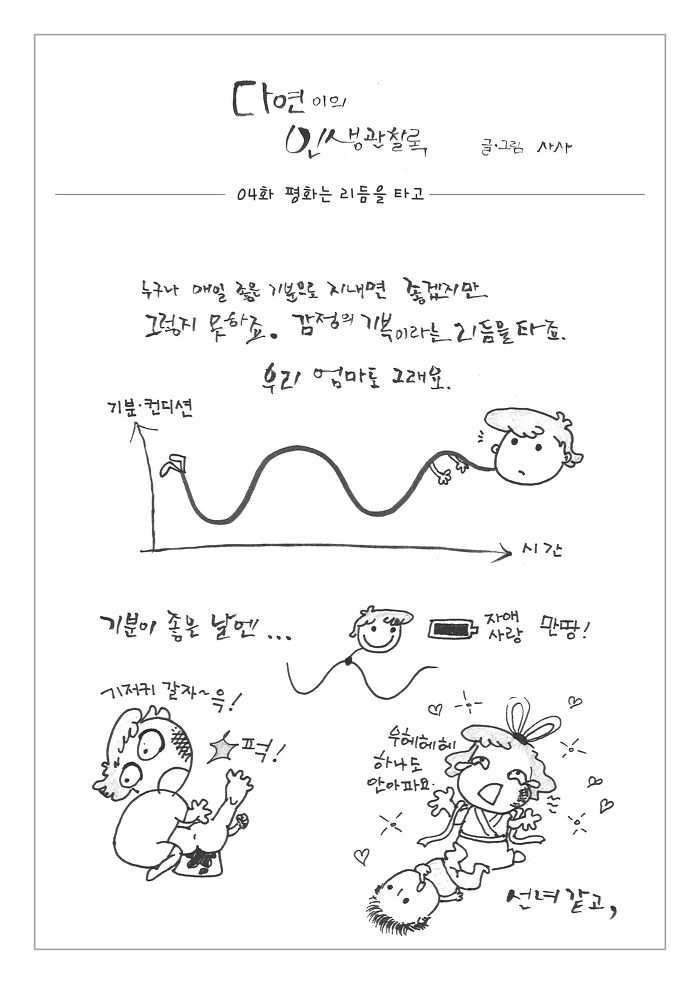 다연이의
인생관찰록
글·그림 사사
04화 평화는 리듬을 타고
누구나 매일 좋은 기분으로 지내면 좋겠지만
그렇지 못하죠. 감정의 기복이라는 리듬을 타죠.
우리 엄마도 그래요.
기분·컨디션
시간
기분이 좋은 날엔...
자애
사랑 만땅!
기저귀 갈자~윽!
퍽!
우헤헤헤
하나도
안아파요.
선녀 같고,